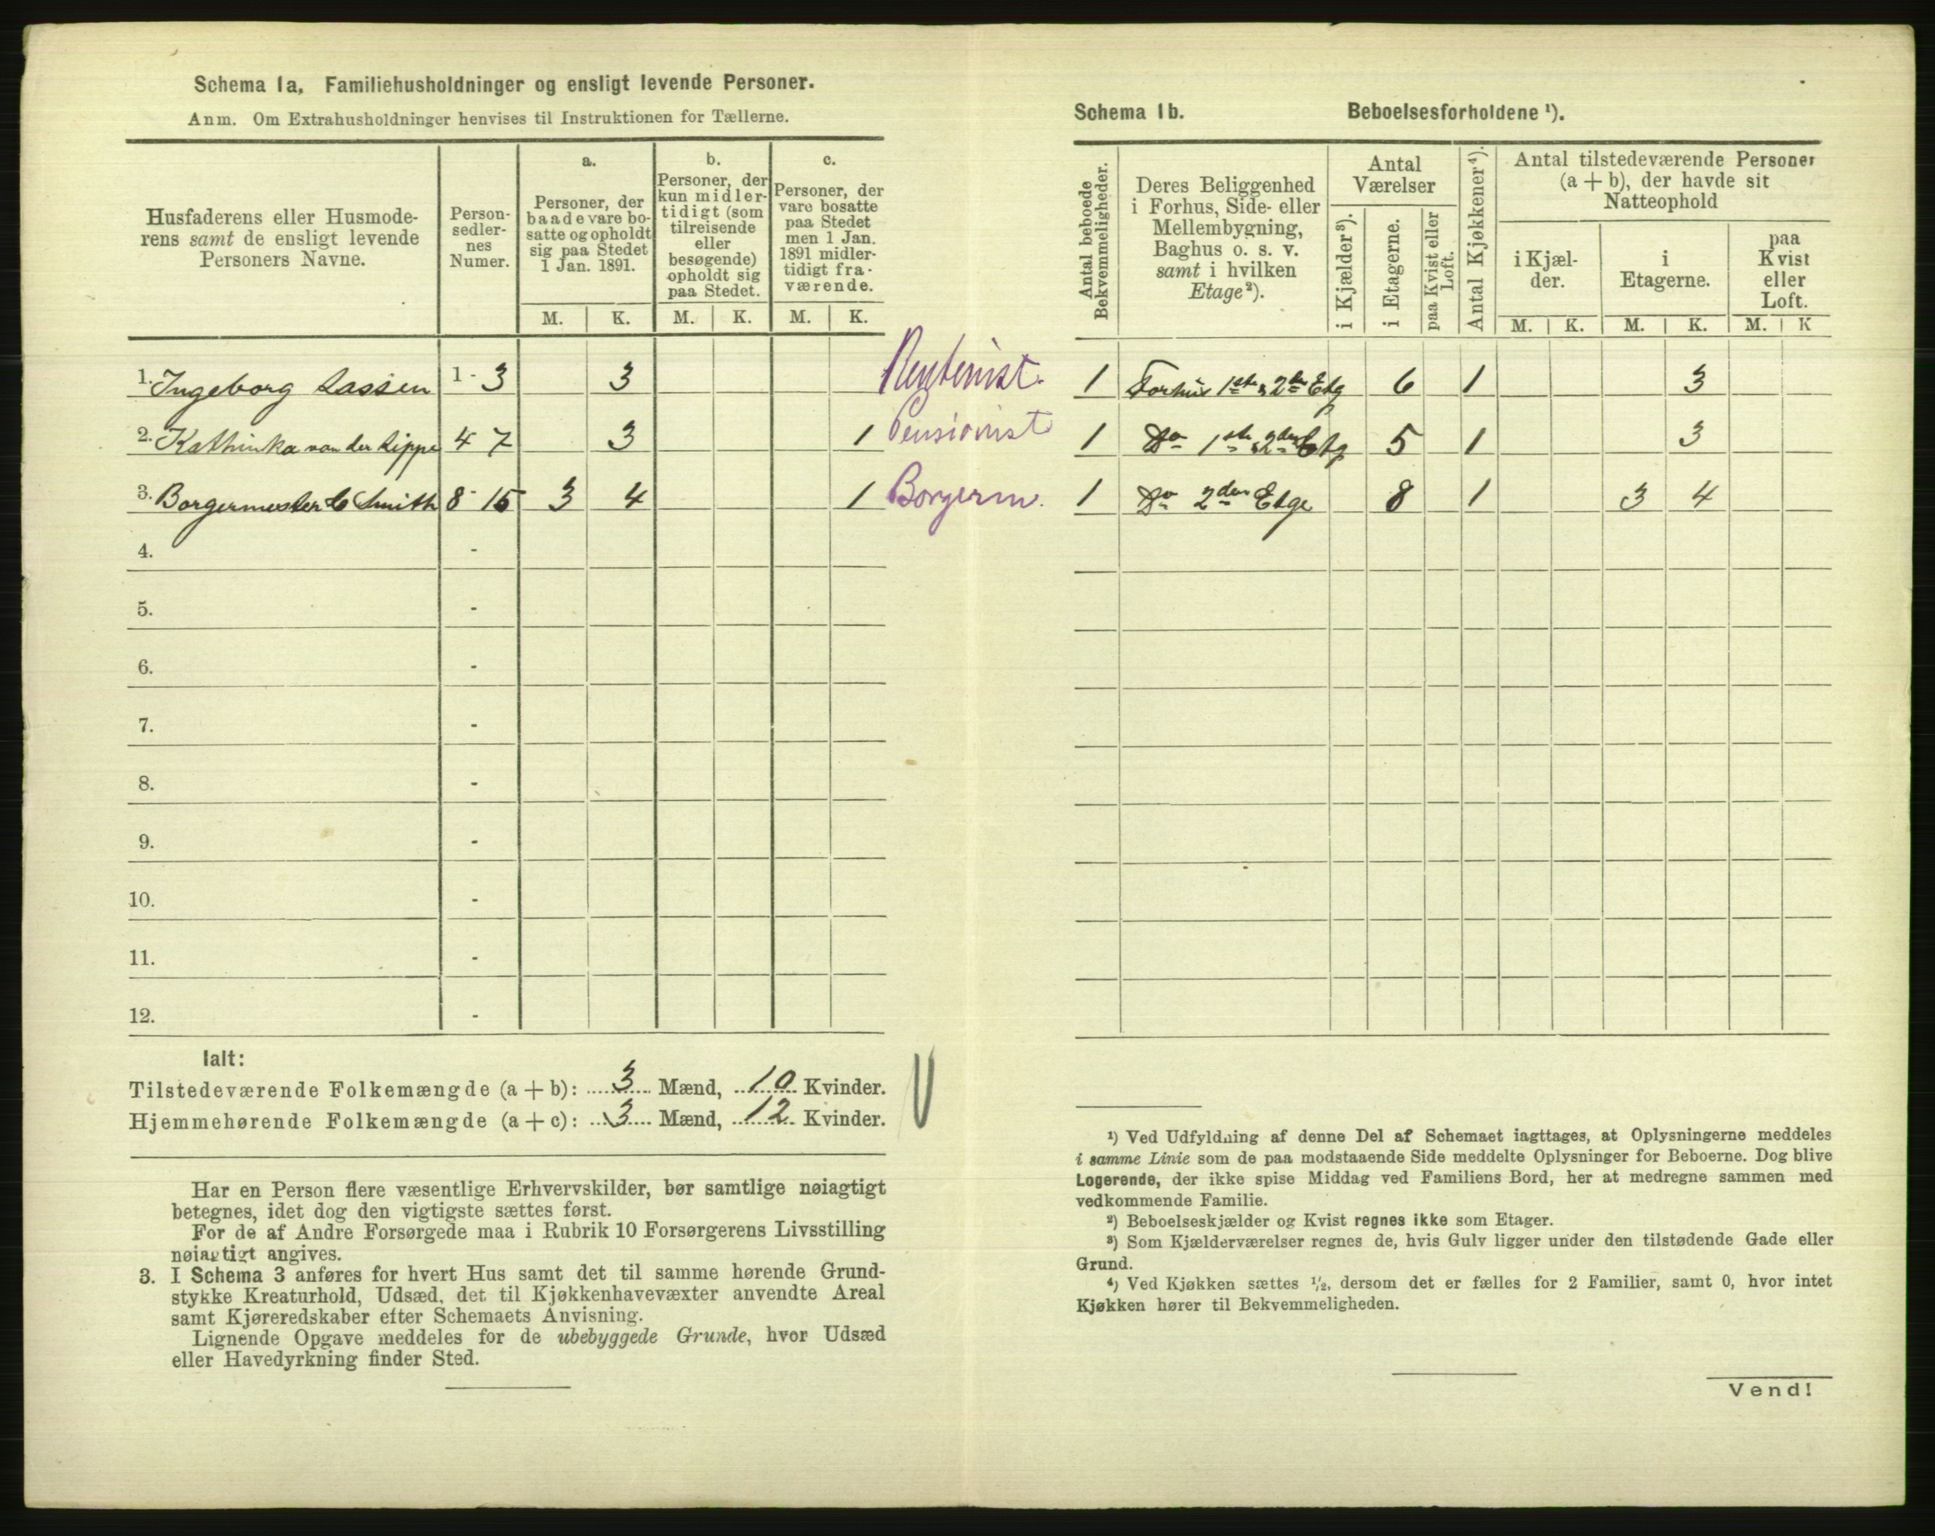 Schema 1a, Familiehusholdninger og ensligt levende Personer.
Anm. Om Extrahusholdninger henvises til Instruktionen for Tællerne.
Husfaderens eller Husmode-
rens samt de ensligt levende
Personers Navne.
Person-
sedler-
nes
Numer.
a.
Personer, der
baade vare bo-
satte og opholdt
sig paa Stedet
1 Jan. 1891.
b.
Personer, der
kun midler-
tidigt (som
tilreisende
eller
besøgende)
opholdt sig
paa Stedet.
c.
Personer, der
vare bosatte
paa Stedet
men 1 Jan.
1891 midler-
tidigt fra-
værende.
M. K. M. K. M. K.
1. Ingeborg Lassen 1 - 3 3 Rentenist.
2. Kathinka van der Lippe 4 7 3 1 Pensionist
3. Borgermester C Smith 8 - 15 3 4 1 Borgerm.
4. -
5. -
6. -
7. -
8. -
9. -
10. -
11. -
12. -
Ialt:
Tilstedeværende Folkemængde (a + b): 3 Mænd, 10 Kvinder.
Hjemmehørende Folkemængde (a + c): 3 Mænd, 12 Kvinder.
Har en Person flere væsentlige Erhvervskilder, bør samtlige nøiagtigt
betegnes, idet dog den vigtigste sættes først.
For de af Andre Forsørgede maa i Rubrik 10 Forsørgerens Livsstilling
nøiagtigt angives.
3. I Schema 3 anføres for hvert Hus samt det til samme hørende Grund-
stykke Kreaturhold, Udsæd, det til Kjøkkenhavevæxter anvendte Areal
samt Kjøreredskaber efter Schemaets Anvisning.
Lignende Opgave meddeles for de ubebyggede Grunde, hvor Udsæd
eller Havedyrkning finder Sted.
Schema 1b. Beboelsesforholdene ¹).
Antal beboede
Bekvemmeligheder.
Deres Beliggenhed
i Forhus, Side- eller
Mellembygning,
Baghus o. s. v.
samt i hvilken
Etage²).
Antal
Værelser
i Kjælder³).
i Etagerne.
paa Kvist eller
Loft.
Antal Kjøkkener⁴).
Antal tilstedeværende Personer
(a + b), der havde sit
Natteophold
i Kjæl-
der.
i
Etagerne.
paa
Kvist
eller
Loft.
M. K. M. K. M. K
1 Forhus 1ste & 2den Etg 6 1 3
1 Do 1ste & 2den Etg 5 1 3
1 Do 2den Etge 8 1 3 4
¹) Ved Udfyldning af denne Del af Schemaet iagttages, at Oplysningerne meddeles
i samme Linie som de paa modstaaende Side meddelte Oplysninger for Beboerne. Dog blive
Logerende, der ikke spise Middag ved Familiens Bord, her at medregne sammen med
vedkommende Familie.
²) Beboelseskjælder og Kvist regnes ikke som Etager.
³) Som Kjælderværelser regnes de, hvis Gulv ligger under den tilstødende Gade eller
Grund.
⁴) Ved Kjøkken sættes ½, dersom det er fælles for 2 Familier, samt 0, hvor intet
Kjøkken hører til Bekvemmeligheden.
Vend!